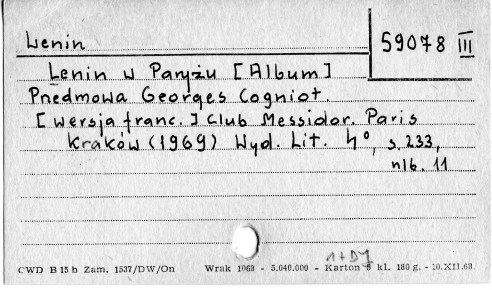 Lenin
59078 III
Lenin w Paryżu [Album]
Pnedmowa Georges Cogniot.
[wersja franc.] Club Messidor. Paris
Kraków (1969) Wyd. Lit. 4°, s. 233,
nlb. 11
1+DJ
CWD B 15 b Zam. 1537/DW/On Wrak 1068 - 5.040.000 - Karton 5 kl. 180 g. - 10.XII.68.